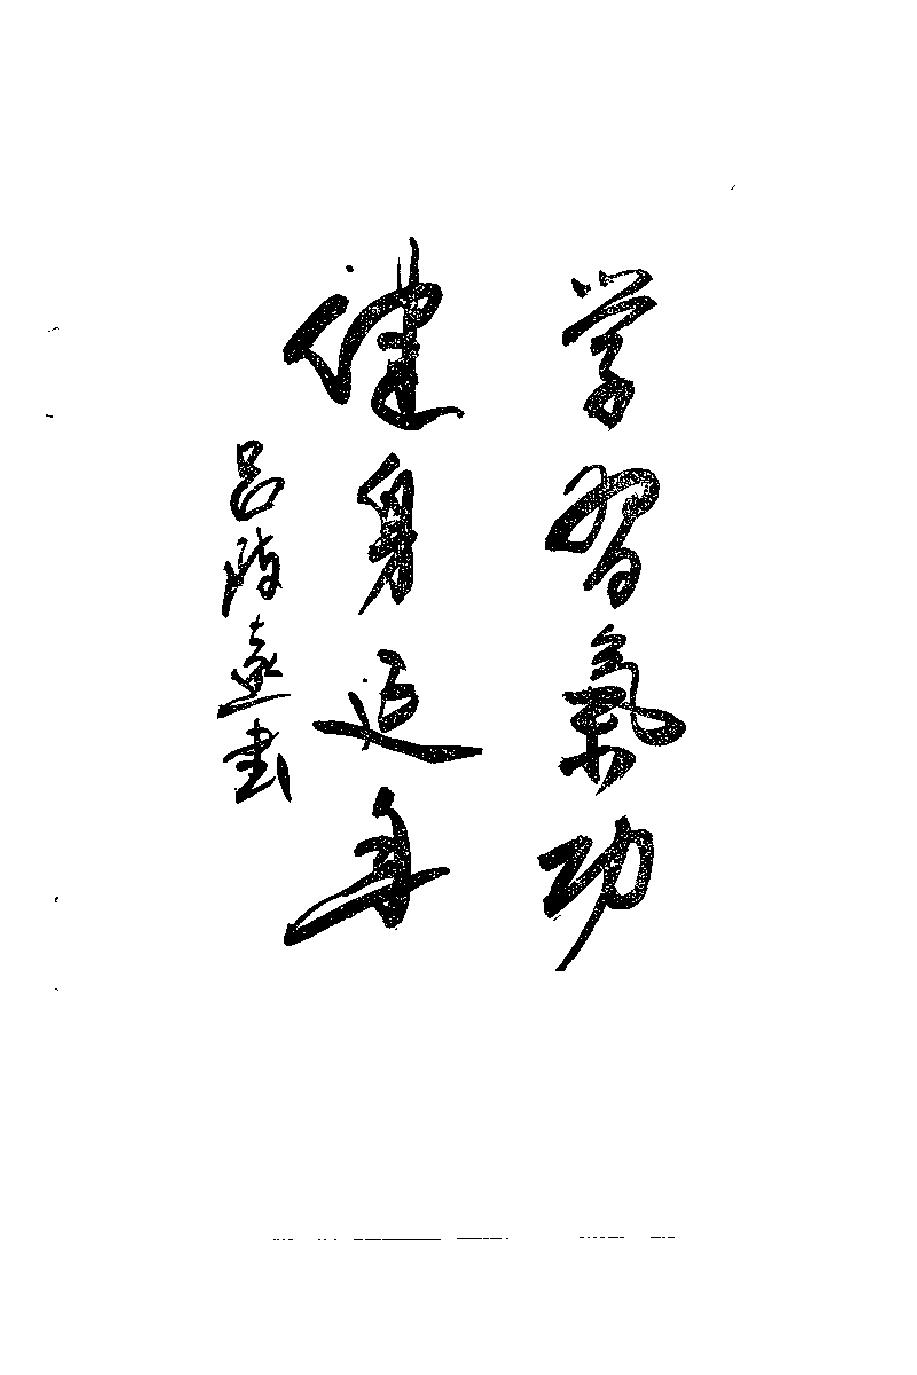 学習氣功
健身延年
呂 遠書